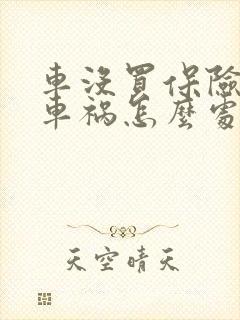 車沒買保險
車禍怎麼處
天空晴天